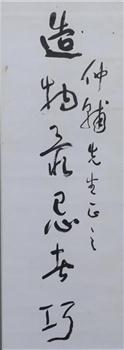 仲輔先生正之
造物最忌者巧